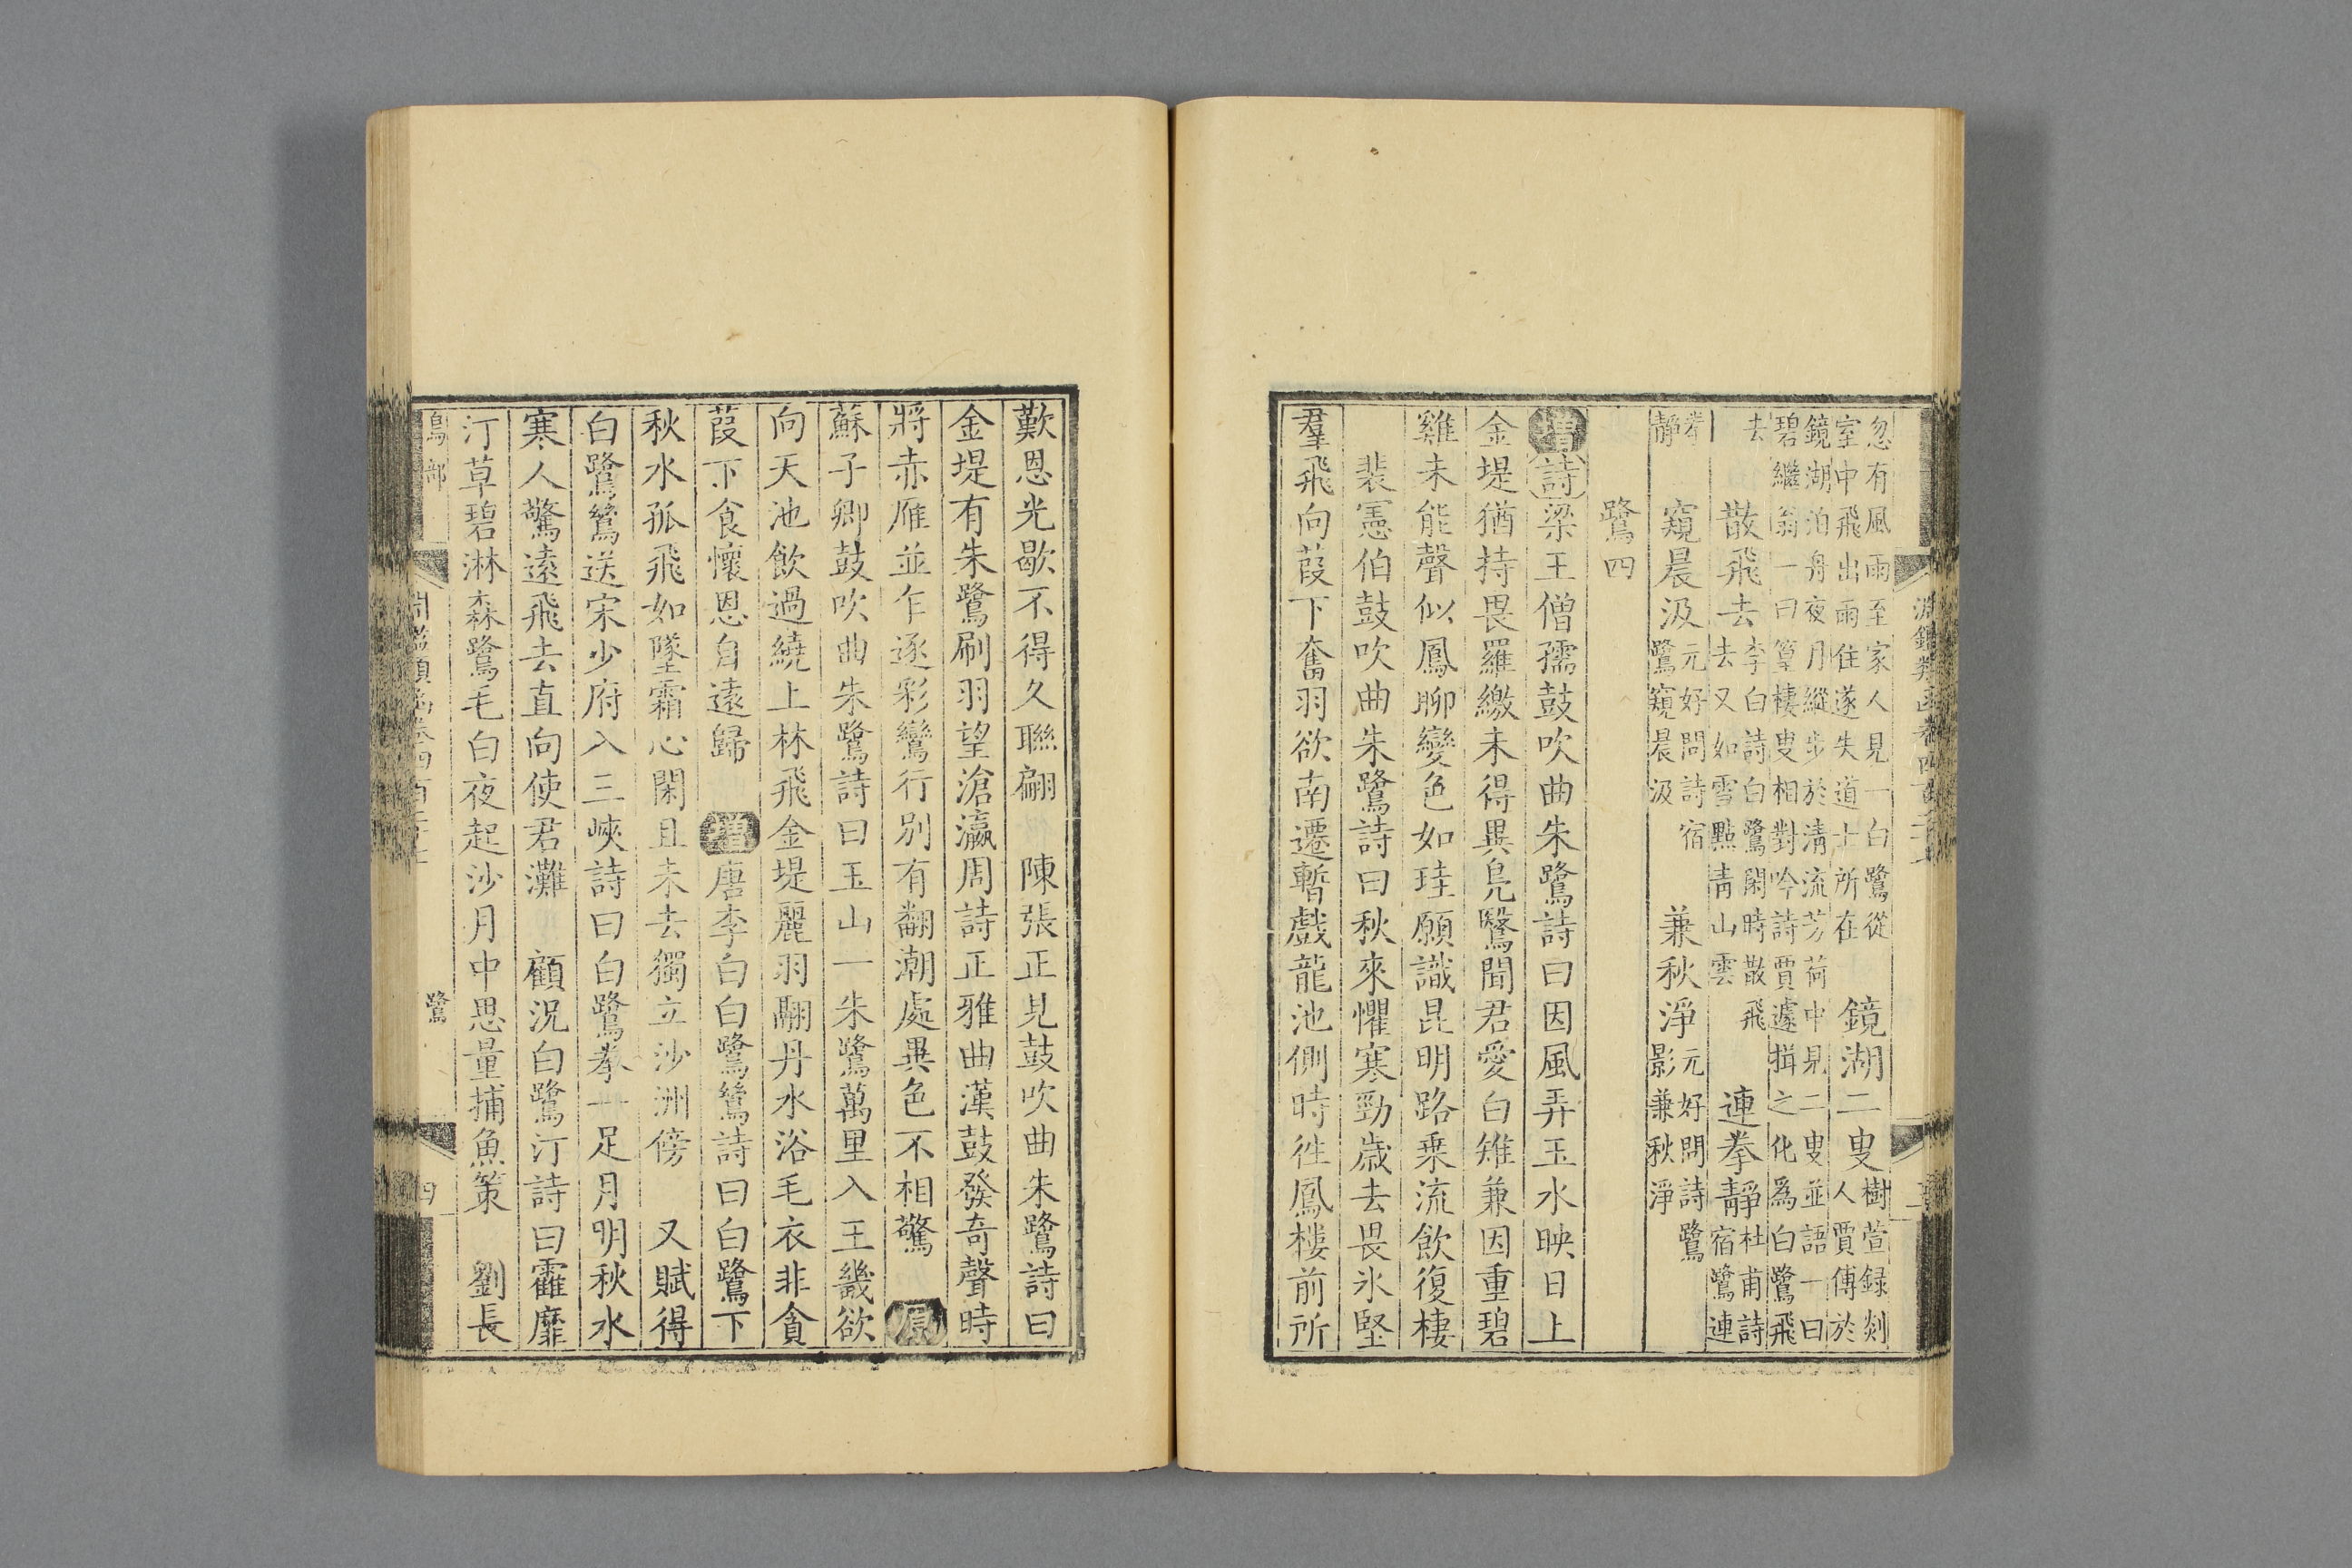 忽有風雨至家人見一白鷺從
室中飛出雨住遂失道士所在
鏡湖二叟
樹萱録剡
人賈傅於
鏡湖泊舟夜月縱步於淸流芳荷中見二叟並語一曰
碧繼翁一曰篁棲叟相對吟詩賈遽揖之化爲白鷺飛
去
散飛去
李白詩白鷺閑時散飛
去又如雪點靑山雲
連拳靜
杜甫詩
宿鷺連
拳
靜
窺晨汲
元好問詩宿
鷺窺晨汲
兼秋淨
元好問詩鷺
影兼秋淨
鷺四
增詩梁王僧孺鼓吹曲朱鷺詩曰因風弄玉水映日上
金堤猶持畏羅繳未得異鳧鷖聞君愛白雉兼因重碧
雞未能聲似鳳聊變色如珪願識昆明路乗流飲復棲
裴憲伯鼓吹曲朱鷺詩曰秋來懼寒勁歳去畏氷堅
羣飛向葭下奮羽欲南遷暫戲龍池側時徃鳳樓前所
歎恩光歇不得久聯翩 陳張正見鼓吹曲朱鷺詩曰
金堤有朱鷺刷羽望滄瀛周詩正雅曲漢鼓發奇聲時
將赤雁並乍逐彩鸞行别有翻潮處異色不相驚 原
蘇子卿鼓吹曲朱鷺詩曰玉山一朱鷺萬里入王畿欲
向天池飲過繞上林飛金堤麗羽翮丹水浴毛衣非貪
葭下食懷恩自遠歸 增唐李白白鷺鷥詩曰白鷺下
秋水孤飛如墜霜心閑且未去獨立沙洲傍 又賦得
白鷺鷥送宋少府入三峽詩曰白鷺拳一足月明秋水
寒人驚遠飛去直向使君灘 顧況白鷺汀詩曰靃靡
汀草碧淋森鷺毛白夜起沙月中思量捕魚策 劉長
鳥部
淵鑑類函卷四百二十
鷺
四